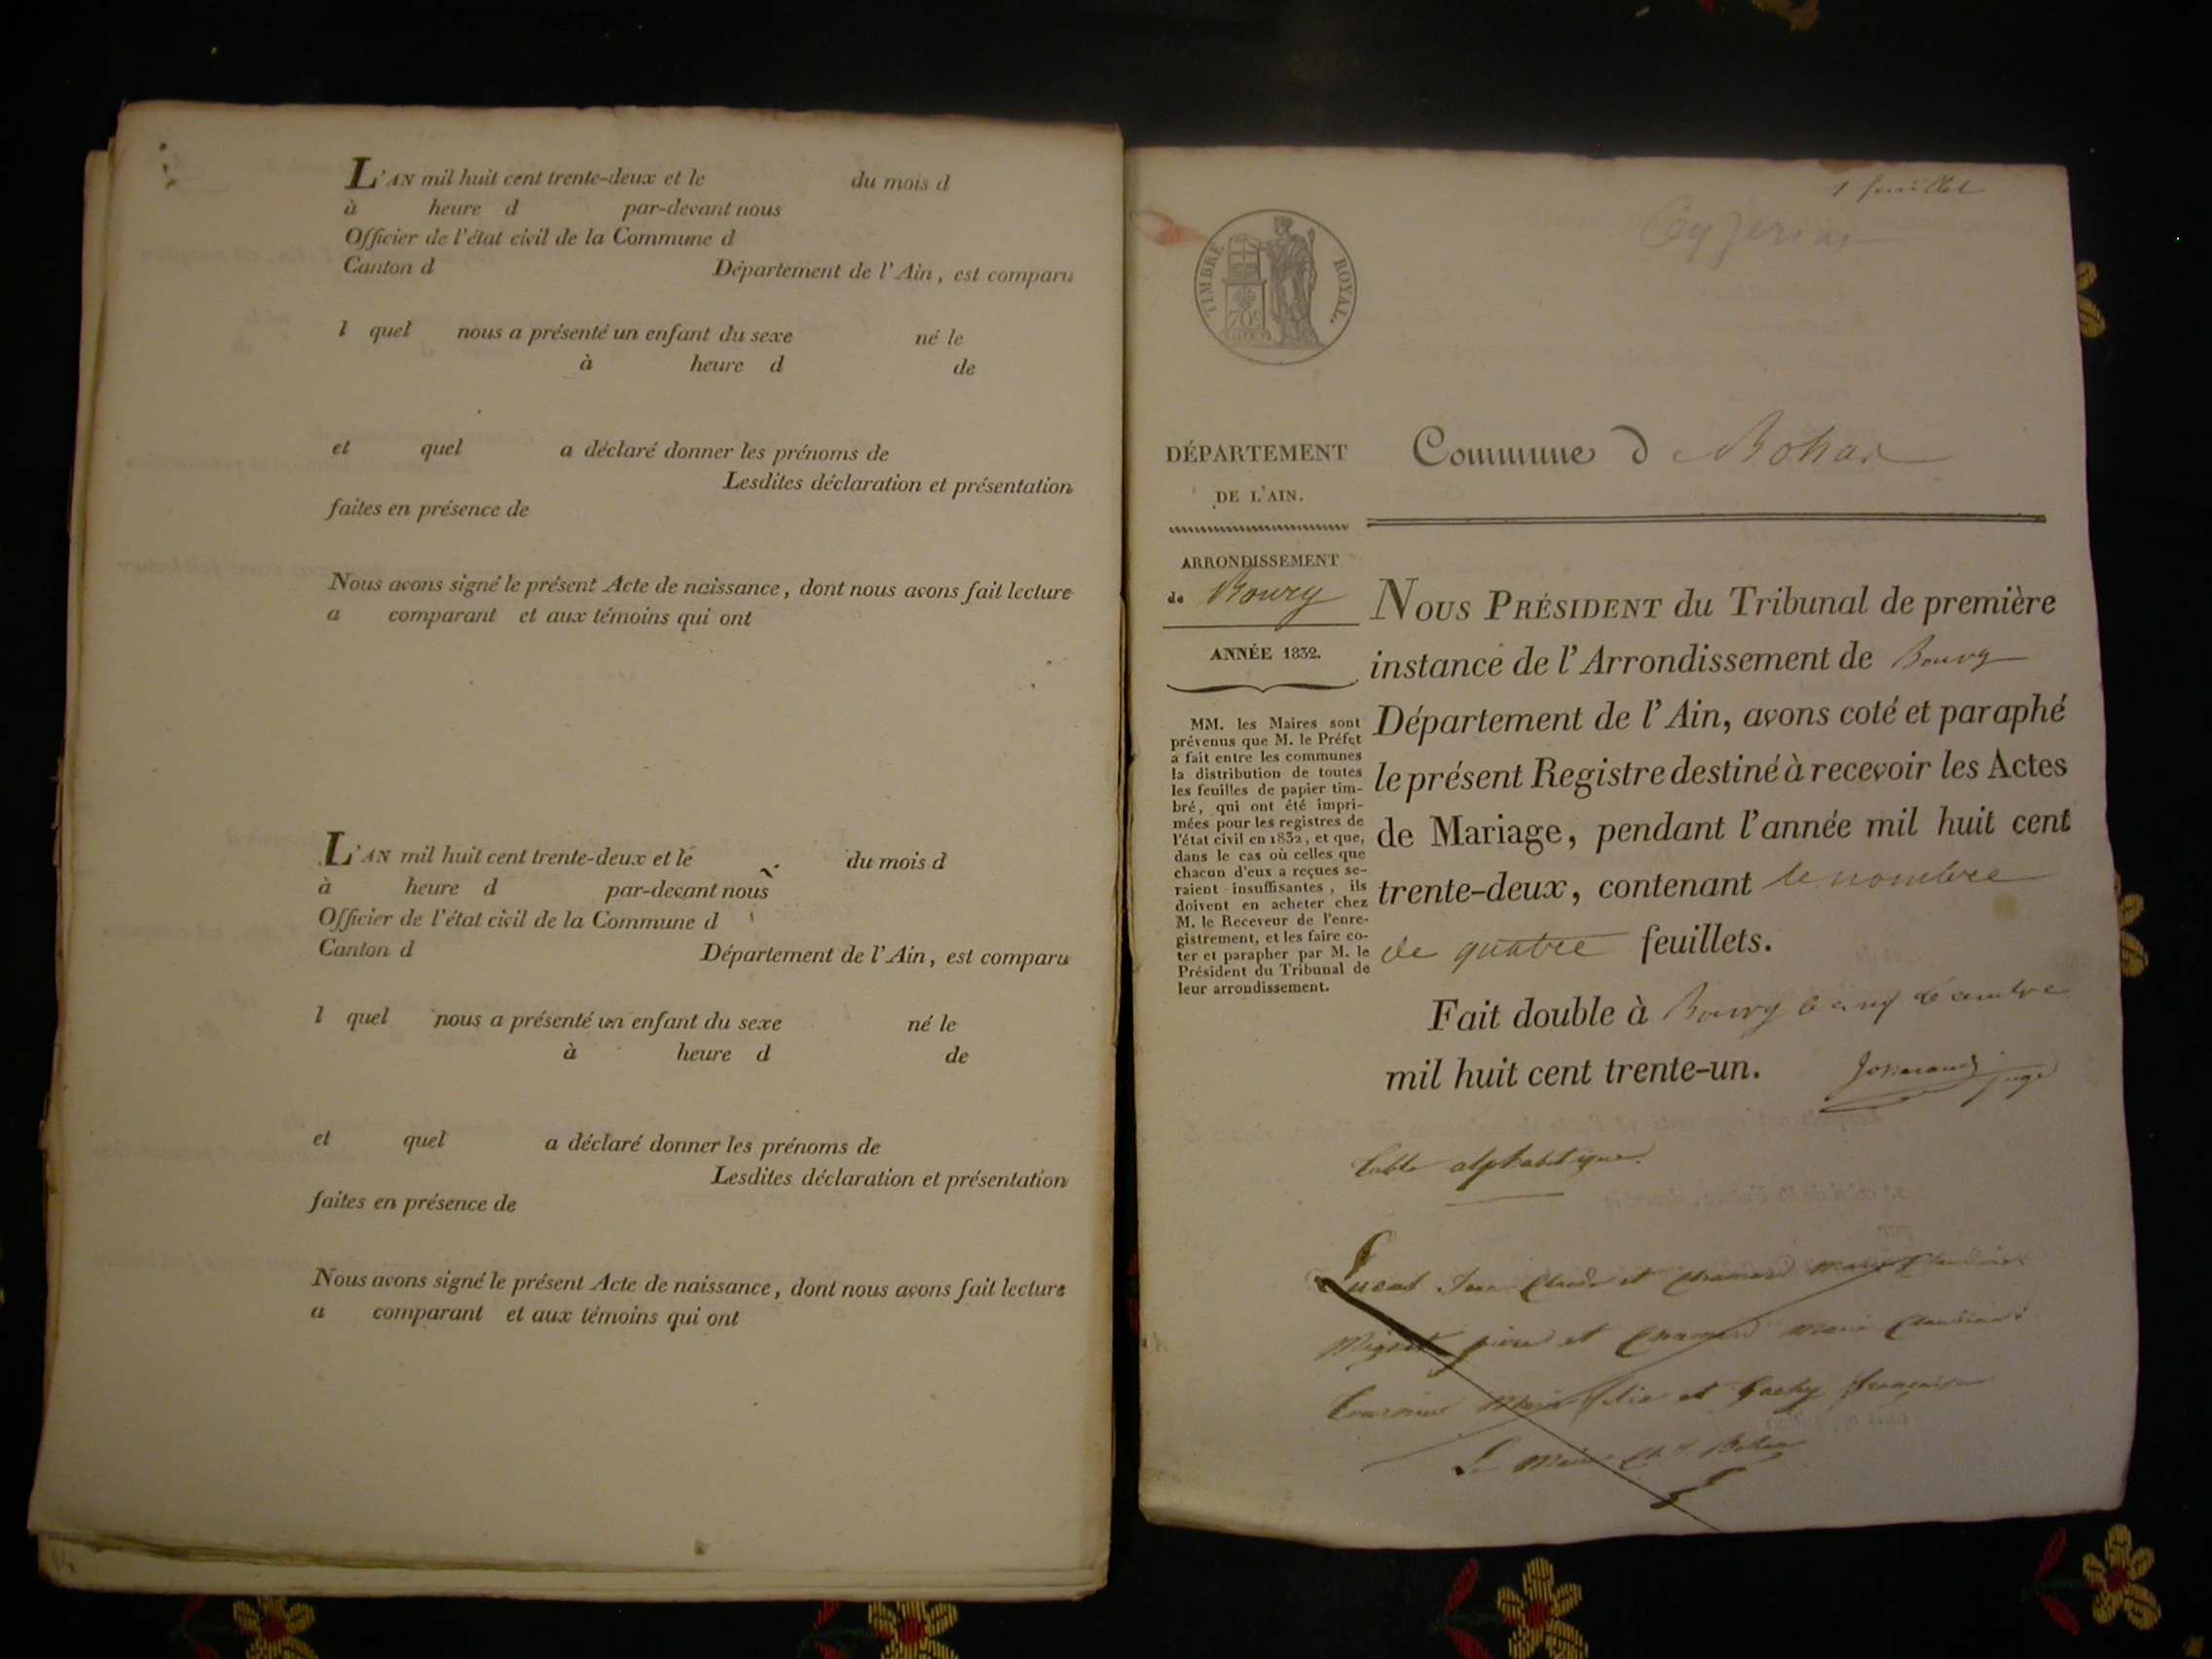 L'AN mil huit cent trente-deux et le du mois d
à heure d par-devant nous
Officier de l'état civil de la Commune d
Canton d Département de l'Ain, est comparu
l quel nous a présenté un enfant du sexe né le
à heure d de
et quel a déclaré donner les prénoms de
Lesdites déclaration et présentation
faites en présence de
Nous avons signé le présent Acte de naissance, dont nous avons fait lecture
a comparant et aux témoins qui ont
L'AN mil huit cent trente-deux et le du mois d
à heure d par-devant nous
Officier de l'état civil de la Commune d
Canton d Département de l'Ain, est comparu
l quel nous a présenté un enfant du sexe né le
à heure d de
et quel a déclaré donner les prénoms de
Lesdites déclaration et présentation
faites en présence de
Nous avons signé le présent Acte de naissance, dont nous avons fait lecture
a comparant et aux témoins qui ont
1 feuillet
TIMBRE ROYAL.
70c
DÉPARTEMENT
DE L'AIN.
ARRONDISSEMENT
de Bourg
ANNÉE 1832.
MM. les Maires sont
prévenus que M. le Préfet
a fait entre les communes
la distribution de toutes
les feuilles de papier tim-
bré, qui ont été impri-
mées pour les registres de
l'état civil en 1832, et que,
dans le cas où celles que
chacun d'eux a reçues se-
raient insuffisantes, ils
doivent en acheter chez
M. le Receveur de l'enre-
gistrement, et les faire co-
ter et parapher par M. le
Président du Tribunal de
leur arrondissement.
Commune d Bohas
NOUS PRÉSIDENT du Tribunal de première
instance de l'Arrondissement de Bourg
Département de l'Ain, avons coté et paraphé
le présent Registre destiné à recevoir les Actes
de Mariage, pendant l'année mil huit cent
trente-deux, contenant le nombre
de quatre feuillets.
Fait double à Bourg
mil huit cent trente-un.
juge
Table alphabetique.
Jean Claude et Marie Claudine
pierre et Marie Claudine
et françoise
Le Maire